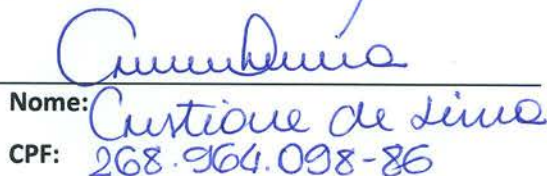 Nome: Cristiane de Lima
CPF: 268.964.098-86